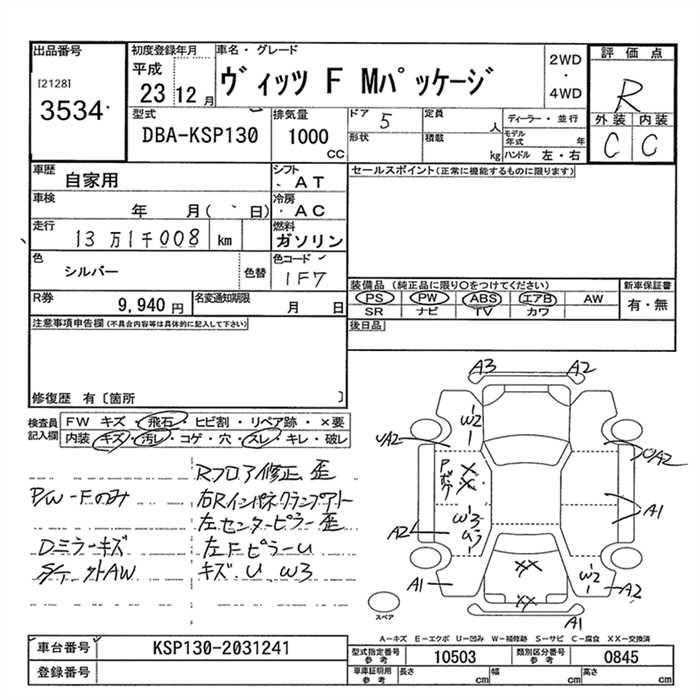 出品番号
[2128]
3534
初度登録年月
平成
23 12月
車名・グレード
ヴィッツ F Mパッケージ
2WD
・
4WD
評価点
R
外装 内装
C C
型式
DBA-KSP130
排気量
1000
CC
ドア 5
定員
人
形状
積載
kg
ディーラー・並行
モデル年式 年
ハンドル 左・右
車歴
自家用
シフト
AT
車検
年 月( 日)
冷房
AC
走行
13万1千008 km
燃料
ガソリン
色
シルバー
色替
色コード
1F7
R券
9,940円
名変通知期限
月 日
セールスポイント(正常に機能するものに限ります)
装備品 (純正品に限り○をつけてください)
PS PW ABS エアB AW
SR ナビ TV カワ
新車保証書
有・無
後日品
注意事項申告欄(不具合内容等は具体的に記入して下さい)
修復歴 有〔箇所 〕
検査員記入欄
FW キズ・飛石・ヒビ割・リペア跡・×要
内装・キズ・汚レ・コゲ・穴・スレ・キレ・破レ
Rフロア修正、歪
P/W-Fのみ 右Rインパネクランプアト
左センターピラー歪
Dミラーキズ 左Fピラーu
キズ、U、W3
A3 A2
W2
A2 A2
P
XX
XX
W3
A1
A2
A1
XX
W2
A2
XX
A1
スペア
A-キズ E-エクボ U-凹み W-補修跡 S-サビ C-腐食 XX-交換済
車台番号
KSP130-2031241
登録番号
型式指定番号
参考
10503
類別区分番号
参考
0845
車庫証明用
参考
長さ cm
幅 cm
高さ cm